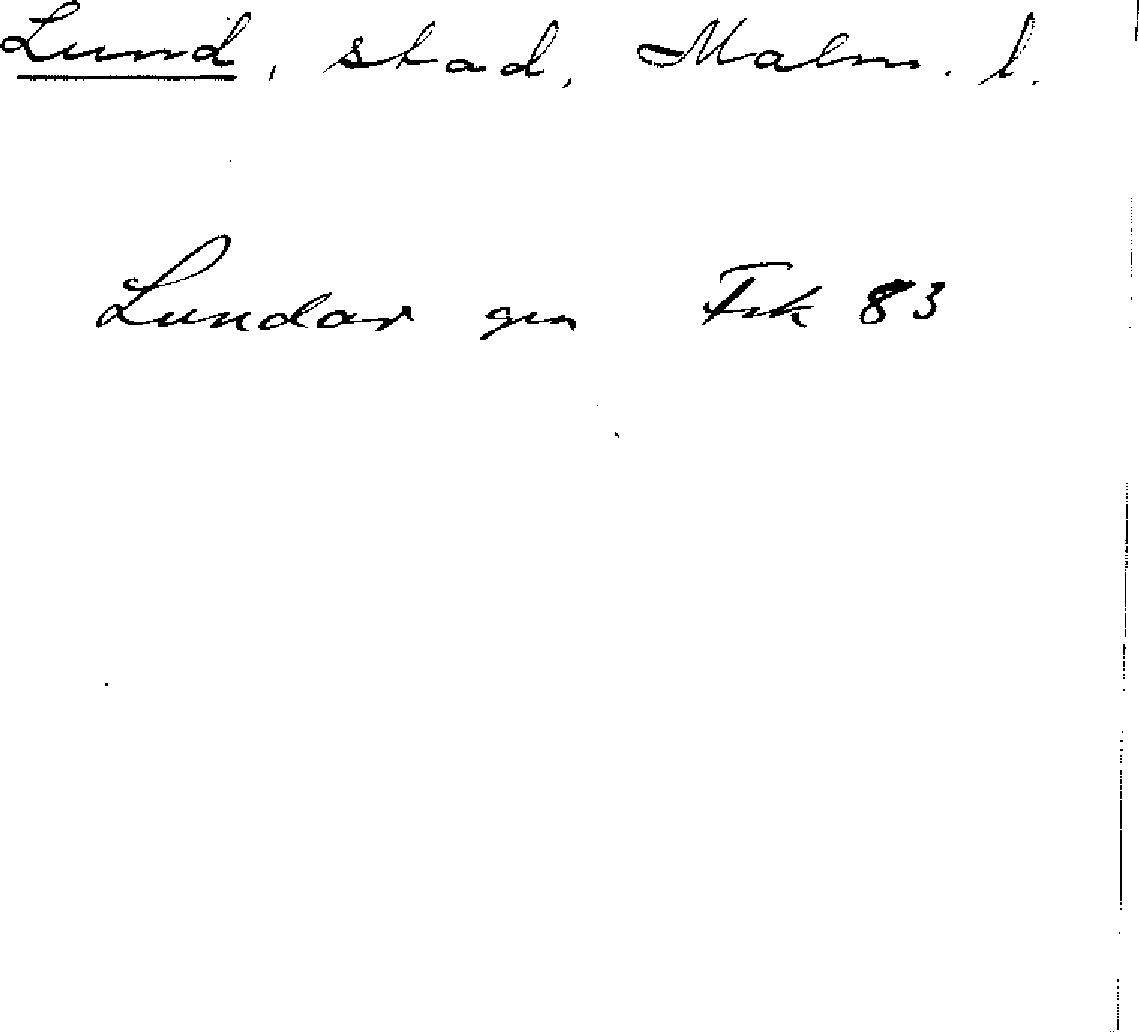 Lund, stad, Malm. l.
Lundar gen Frk 83